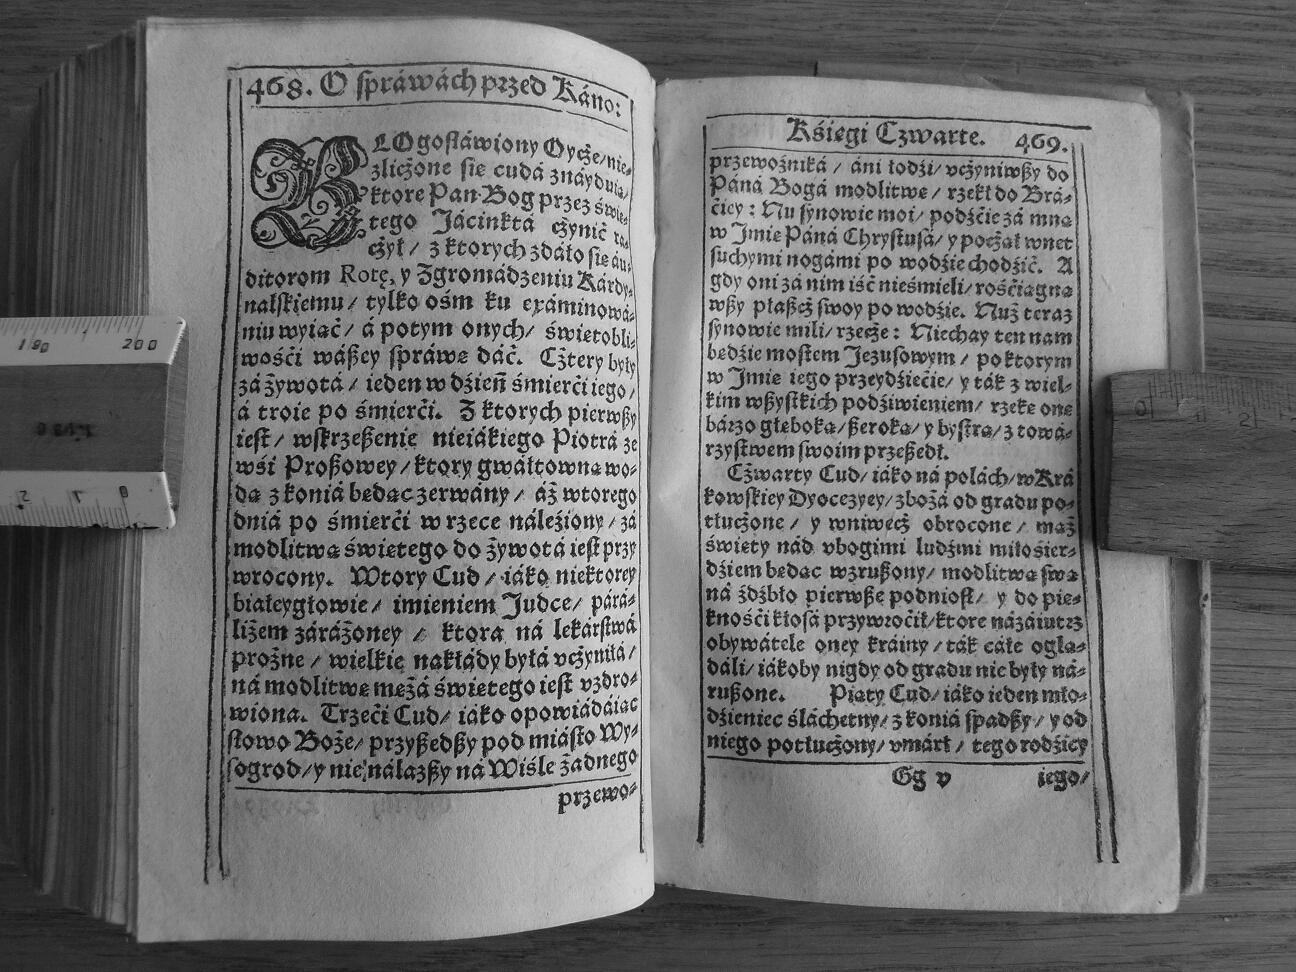 468. O spráwách przed Káno:
BLOgosłáwiony Oycże/ nie-
zlicżone sie cudá znáyduią/
ktore Pan Bog przez świę-
tego Jácinktá cżynić ra-
cżył/ z ktorych zdáło sie áu-
ditorom Rotę, y Zgromádzeniu Kárdy-
nalskiemu/ tylko ośm ku exáminowá-
niu wyiąć/ á potym onych/ świętobli-
wośći wászey spráwę dáć. Cżtery były
zá żywotá/ ieden w dźień śmierći iego/
á troie po śmierći. Z ktorych pierwszy
iest/ wskrzeszenie nieiákiego Piotrá ze
wśi Proszowey/ ktory gwałtowną wo-
dą z koniá będąc zerwány/ áż wtorego
dniá po śmierći w rzece náleźiony/ zá
modlitwą świętego do żywotá iest przy
wrocony. Wtory Cud/ iáko niektorey
białeygłowie/ imieniem Judce/ párá-
liżem záráżoney/ ktora ná lekárstwá
prożne/ wielkie nakłády byłá vcżyniłá/
ná modlitwę mężá świętego iest vzdro-
wiona. Trzeći Cud/ iáko opowiádáiąc
słowo Boże/ przyszedszy pod miásto Wy-
sogrod/ y nie nálazszy ná Wiśle żadnego
przewo-
Kśięgi Czwarte. 469.
przewoźniká/ áni łodźi/ vcżyniwszy do
Páná Bogá modlitwę/ rzekł do Brá-
ćiey: Nu synowie moi/ podźćie zá mną
w Jmię Páná Chrystusá/ y pocżął wnet
suchymi nogámi po wodźie chodźić. A
gdy oni zá nim iść nieśmieli/ rośćiągną
wszy płaszcż swoy po wodźie. Nuż teraz
synowie mili/ rzecże: Niechay ten nam
będźie mostem Jezusowym/ po ktorym
w Jmię iego przeydźiećie/ y ták z wiel-
kim wszystkich podźiwieniem/ rzekę onę
bárzo głęboką/ szeroką/ y bystrą/ z towá-
rzystwem swoim przeszedł.
Cżwarty Cud/ iáko ná polách/ w Krá
kowskiey Dyocezyey/ zbożá od gradu po-
tłucżone/ y wniwecż obrocone/ mąż
święty nád vbogimi ludźmi miłośier-
dźiem będąc wzruszony/ modlitwą swą
ná źdźbło pierwsze podniosł/ y do pię-
knośći kłosá przywroćił/ ktore názáiutrz
obywátele oney kráiny/ ták całe oglą-
dáli/ iákoby nigdy od gradu nic były ná-
ruszone. Piąty Cud/ iáko ieden mło-
dźieniec śláchetny/ z koniá spadszy/ y od
niego potłucżony/ vmárł/ tego rodźicy
Gg v iego/
190 200
2 1 0
0 1 2